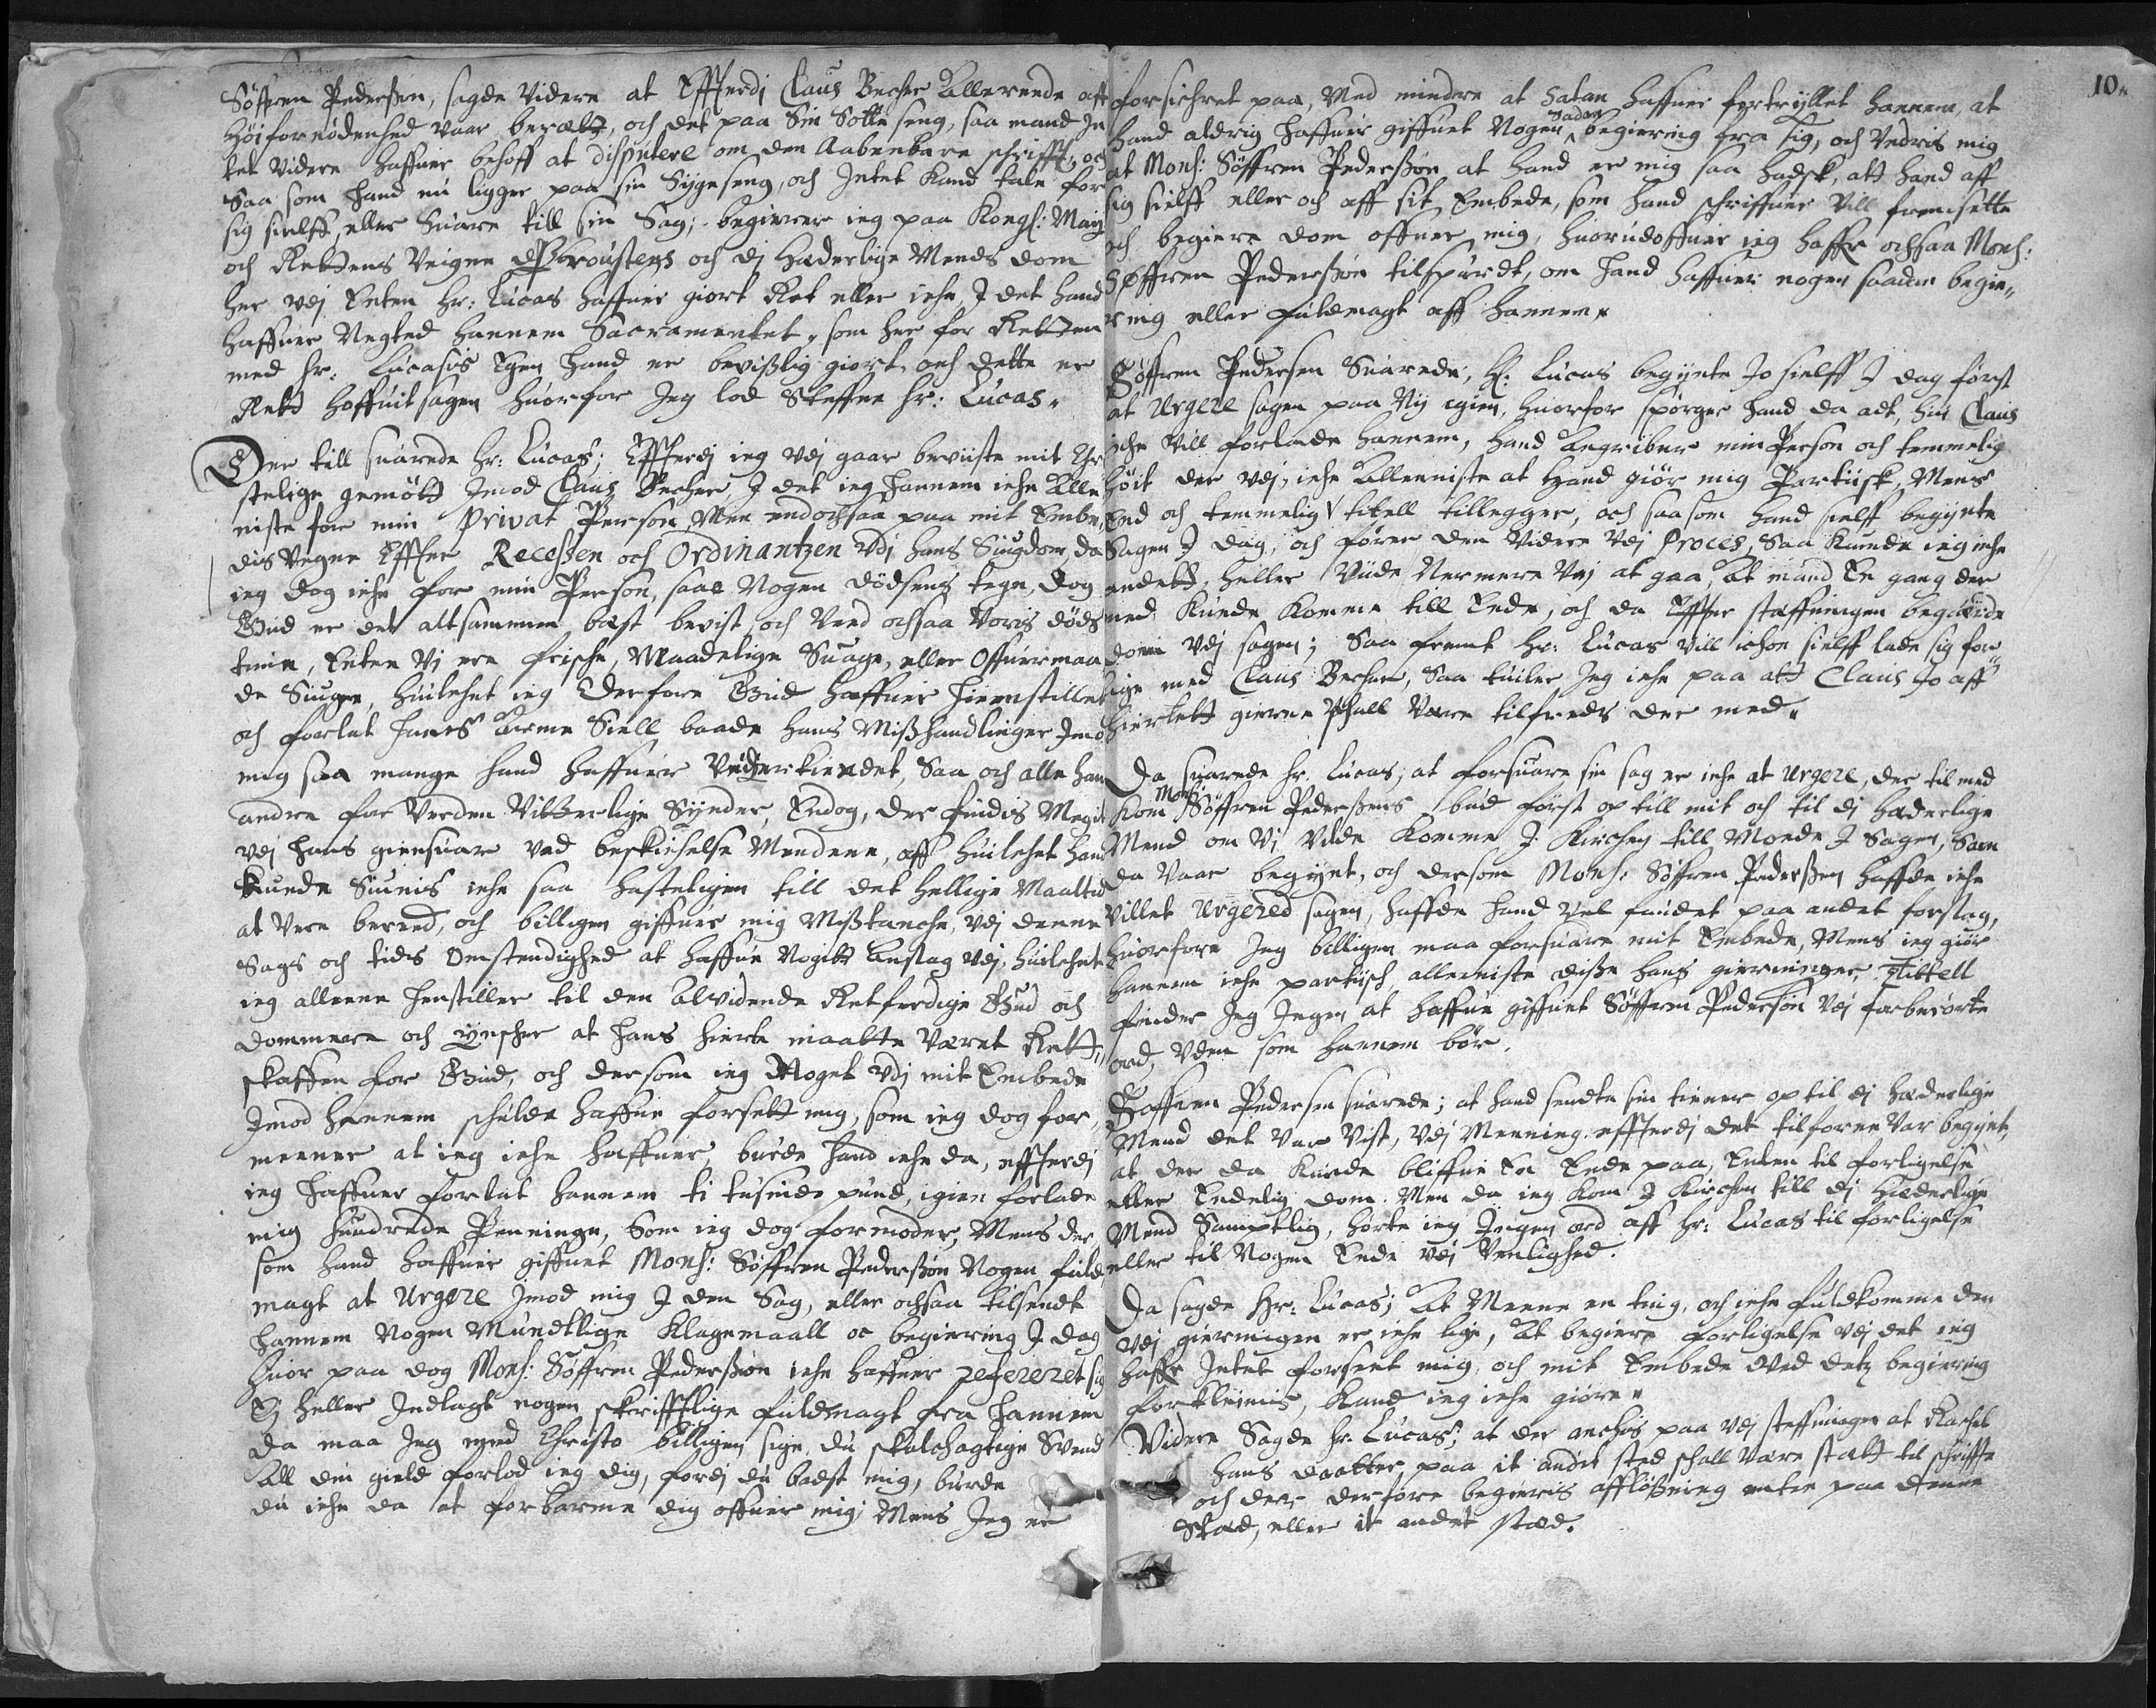 Søffren Pedersen, sagde Videre at Effterdj Claus Becher Allerede aff
høifornødenhed vaar berætt, och det paa Sin Sotte seng, saa mand In
tet Videre haffuer behoff at disputere om den Aabenbare schrifft, och
Saa som hand nu ligger paa sin Sygeseng, och Intet Kand tale for
sig sielff, eller Suare till sin Sag; begierer ieg paa Kongl: Maij
och Rettens Veigne Probuustens och dj Hæderlige Mends dom
her vdj Enten Hr: Lucas haffuer giort Ret eller iche, I det hand
haffuer Negted hannem Sacramentet, som her for Retten
med hr: Lucasis Egen hand er bevißlig giort, och dette er
Rett hoffuitsagen huorfor Jeg lod Steffne hr: Lucas.
Der till suarede hr: Lucas; Effterdj ieg vdj gaar beviiste mit Chr
stelige gemøtt Imod Claus Becher, I det ieg hannem iche Alle
niste for min Privat Person, Men endochsaa paa mit Embe,
dis Vegne Effter Receßen och Ordinantzen vdj hans Siugdom, da
ieg dog iche for min Person, saae Nogen dødsens tegn, dog
Gud er det altsammen best bevist, och Veed ochsaa Voris døds
time, Enten Vj ere friske, Maadelige Suage, eller Offuermaa
de Siuge, huilchet ieg derfore Gud haffuer hiemstillet
och forlat hans Arme Siell baade hans Mißhandlinger Imo
mig saa mange hand haffuer Vederkiendet, Saa och alle han
andre for Verden Vitterlige Synder, Endog, der findis Megit
vdj hans giensuar ved beskichelse Mendene, aff huilchet hand
kunde Siunis iche saa hasteligen till det hellige Maaltid
at Vere bered, och billigen giffuer mig Mißtanche, vdj denne
Sags och tids Omstendighed at haffue Nogitt Anslag vdj, huilchet
ieg alleene henstiller til den Alvidende Retferdige Gud och
dommere och ynscher at hans hierte maatte Været Rett,
skaffen for Gud, och dersom ieg Noget vdj mit Embede
Imod hannem schulde haffue forsett mig, som ieg dog for,
meener at ieg iche haffuer, burde hand iche da, effterdj
ieg haffuer forlat hannem ti tusinde pund, igien forlade
mig hundrede Peninge, Som ieg dog formoder; Mens der
som hand haffuer giffuet Mons: Søffren Pederßøn Nogen fuld
magt at Urgere Imod mig I den Sag, eller ochsaa tilsendt
hannem Nogen Mundtlige Klagemaall oc begiering I dag
huor paa dog Mons: Søffren Pederßøn iche haffuer refereret sig
Ej heller Indlagt nogen skrifftlige fuldmagt fra hannem
da maa Jeg med Christo billigen sige, du skalchagtige Svend
All din gield forlod ieg dig, fordj du badst mig, burde
du iche da at forbarme dig offuer mig; Mens Jeg er
10.
forsichret paa, Med mindre at Satan haffuer fortryllet hannem, at
Sadan
hand aldrig haffuer giffuet Nogen begiering fra sig, och Vndris mig
at Mons: Søffren Pederßøn at hand er mig saa hadsk, att hand aff
sig sielff eller och aff sit Embede, som hand schriffuer Vill fremsette
och begiere dom offuer mig, huorudoffuer ieg haffr ochsaa Mons:
Søffren Pederßøn tilspurdt, om hand haffuer nogen saadan begie,,
ring eller fuldmagt aff hannem.
Søffren Pedersen Suarede, H: Lucas begynte Jo sielff I dag først
at Urgere sagen paa Ny igien, huorfor spørger hand da att, hui Claus
iche Vill forlade hannem, hand Angriber min Person och temmelig
høit der vdj, iche Alleeniste at Hand giør mig Partiisk, Mens
End och temmelig titell tillegger, och saasom hand sielff begynte
Sagen I dag, och fører den Videre Vdj Proces, Saa kunde ieg iche
andett, heller Viide Nermere Vej at gaa, At mand En gang der
med kunde komme till Ende, och da Effter steffningen begierde
dom Vdj sagen; Saa fremt hr: Lucas vill ichon sielff lade sig for,,
lige med Claus Becher, Saa tuiler Jeg iche paa att Claus Jo aff
hiertett gierne schall Være tilfreds der med.
Da suarede hr. Lucas, at forsuare sin sag er iche at urgere, der til med
Mons:
kom Søffren Pederßens bud først op till mit och til dj hæderlige
Mend om Vj vilde komme I kirchen till Moede I Sagen, Som
da Vaar begynt, och dersom Mons: Søffren Pederßen haffde iche
villet urgered sagen, haffde hand vel fundet paa andet forslag,
huorfore Jeg billigen maa forsuare mit Embede, Mens ieg giør
hannem iche partiisch alleeniste diße hans gierninger, Tittell
finder Jeg Ingen at haffue giffuet Søffren Pedersøn vdj forberørte
ord, Vden som hannem bør.
Søffren Pedersen suarede; at hand sendte sin tiener op til dj hæderlige
Mend det Var Vist, vdj Meening effterdj det tilforne Var begynt,
at der da kunde bliffue En Ende paa, Enten til forligelse
eller Endelig dom. Men da ieg kom I kirchen till dj hæderlige
Mend Samptlig, hørte ieg Ingen ord aff hr: Lucas til forligelse
eller til Nogen Ende vdj Venlighed.
Da sagde Hr: Lucas; At Meene en ting, och iche fuldkomme den
vdj gierningen er iche lige, At begiere forligelse vdj det ieg
haffr Intet forseet mig, och mit Embede Ved detz begiering
forkleinis, kand ieg iche giøre.
Videre Sagde hr. Lucas; at der anchis paa vdj steffningen at Rachel
hans daatter, paa it andit sted schall Være stætt til schriffte
och der, derfore begieris affløßning enten paa denne
Sted, eller it andet sted.